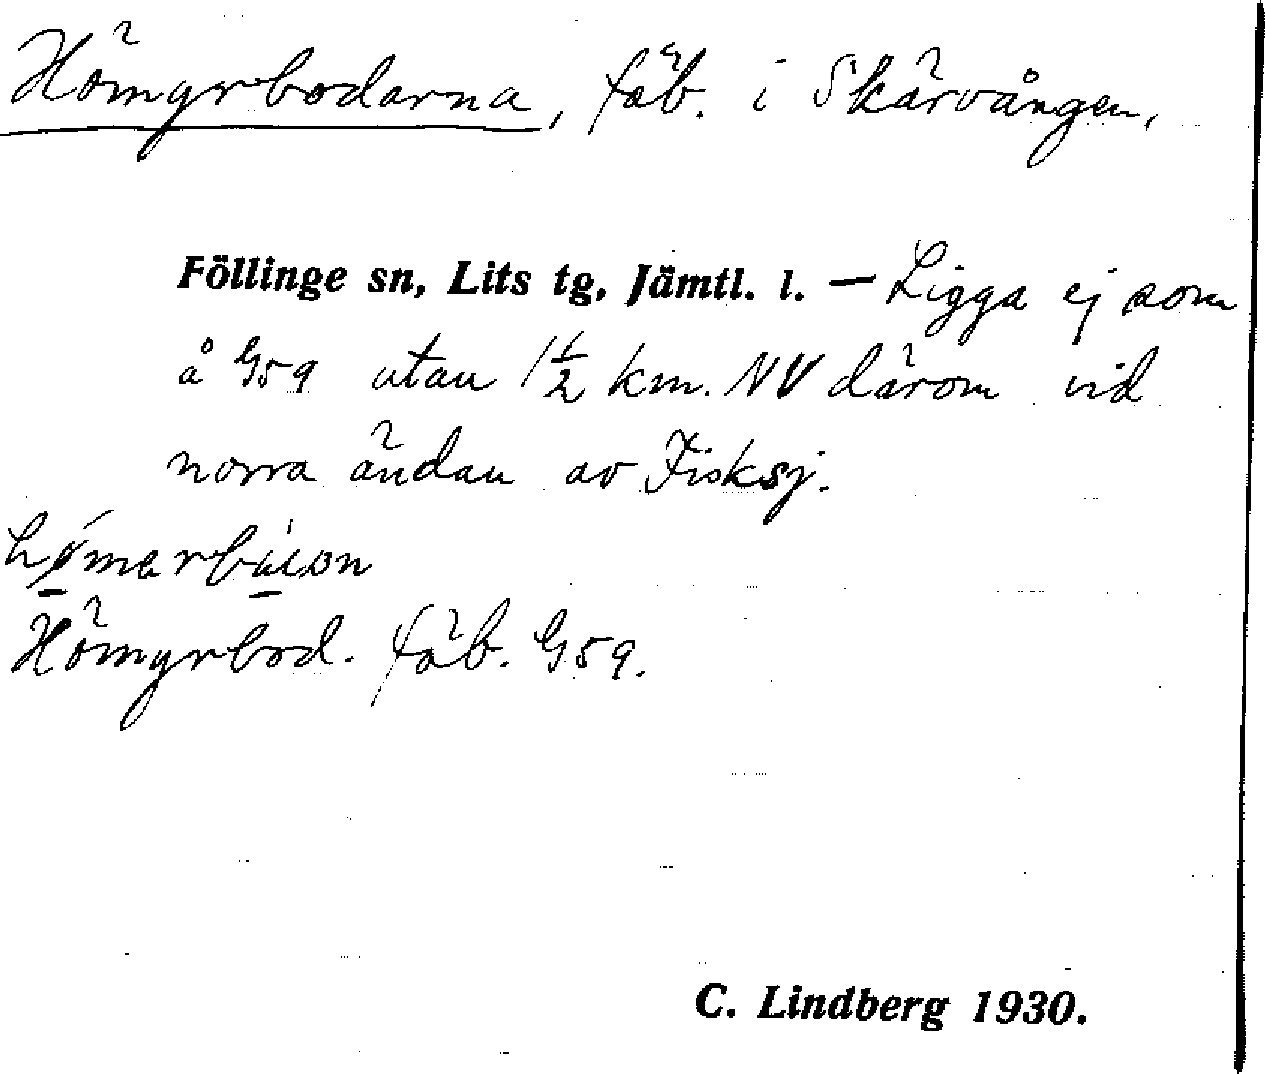 Hömyrbodarna, fäb. i Skärvången,
Föllinge sn, Lits tg, Jämtl. l. — Ligga ej som
å G59 utan 1½ km. NV därom vid
norra ändan av Fisksj.
Hömyrbod. fäb. G59.
C. Lindberg 1930.